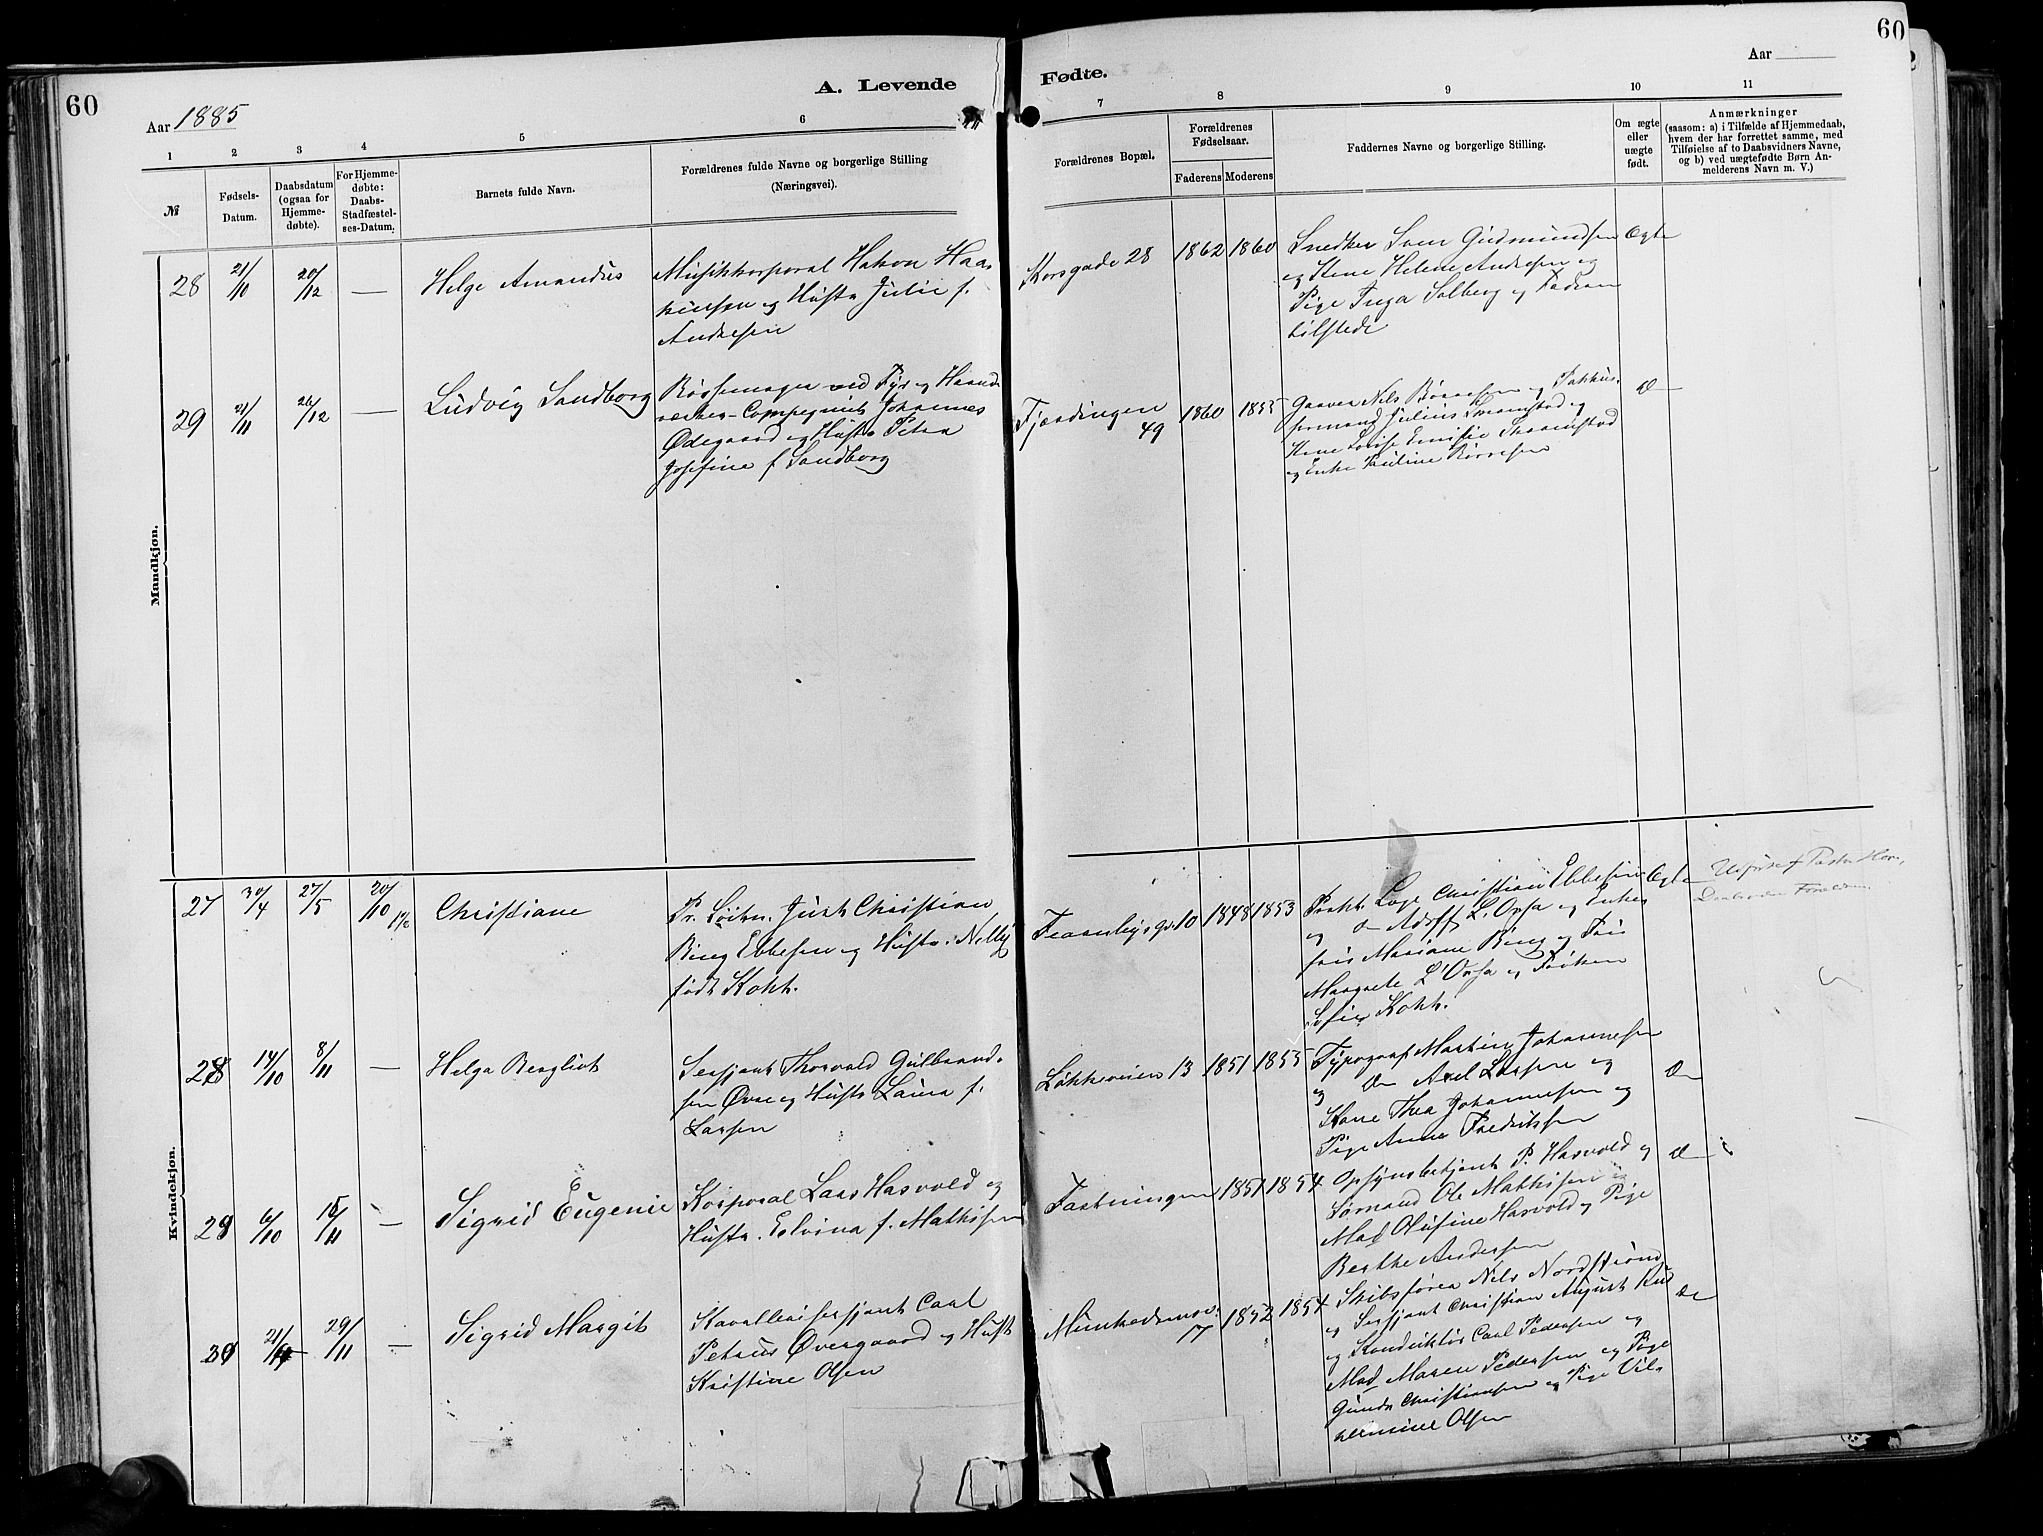 60
60
A. Levende Fødte.
Aar 1885
Aar
1 2 3 4 5 6 7 8 9 10 11
№
Fødsels-
Datum.
Daabsdatum
(ogsaa for
Hjemme-
døbte).
For Hjemme-
døbte:
Daabs-
Stadfæstel-
ses-Datum.
Barnets fulde Navn.
Forældrenes fulde Navne og borgerlige Stilling
(Næringsvei).
Forældrenes Bopæl.
Forældrenes
Fødselsaar.
Faderens Moderens
Faddernes Navne og borgerlige Stilling.
Om ægte
eller
uægte
født.
Anmærkninger
(saasom: a) i Tilfælde af Hjemmedaab,
hvem der har forrettet samme, med
Tilføielse af to Daabsvidners Navne,
og b) ved uægtefødte Børn An-
melderens Navn m. V.)
Mandkjøn.
28 21/10 20/12 — Helge Amandus
Musikkorporal Hakon Haa-
kensen og Hustr Julie f.
Andresen
Korsgade 28 1862 1860
Snedker Sven Gudmundsen
og Kone Helene Andresen og
Pige Inga Solberg og Faderen
tilstede
Ægte
29 21/11 26/12 — Ludvig Sandborg
Bøssemager ved Fyr og Haand-
værker-Compagniet Johannes
Ødegaard og Hustr Petra
Josefine f Sandborg
Fjerdingen
49
1860 1855
Garver Nils Børresen og Pakhus-
formand Julius Svenstad og
Kone Lovise Emilie
og Enke Pauline Børresen
D —
Kvindekjøn.
27 30/4 27/5 20/10 Christiane
Pr. Løitn. Just Christian
Bing Ebbesen og Hustr. Nelly
født Kohh.
Fearnleys gd. 10 1848 1853
Prakt. Læge Christian Ebbesen
og do Adolf L'Orsa og Enke-
frue Mariane Bing og Frue
Margrete L'Orsa og Frøken
Sofie Kohh.
Ægte
28 14/10 8/11 — Helga Bergliot
Sersjant Thorvald Gulbrand-
sen Øvre og Hustr Laura f.
Larsen
Løkkeveien 13 1851 1855
Typograf Martin Johannesen
og do Axel Larsen og
Kone Thea Johannesen og
Pige Anna Fredriksen
Do
29 6/10 15/11 — Sigrid Eugenie
Korporal Lars Hasvold og
Hustr. Elvina f. Mathisen
Fæstningen 1851 1854
Opsynsbetjent P. Hasvold og
Sømand Ole Mathisen og
Mad Olufine Hasvold og Pige
Berthe Andersen
D —
30 29/11 — Sigrid Margit
Kavallerisersjant Carl
Petrus Overgaard og Hustr
Kristine Olsen
Munkedamsv.
17
1852 1854
Skibsfører Nils Nordstrøm
og Sersjant Christian August
og Konduktør Carl Pedersen og
Mad Maren Pedersen og Pige
Gunda Christiansen og Pige Vil-
helmine Olsen
Do